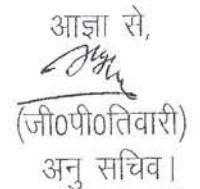 आज्ञा से,
(जी0पी0तिवारी)
अनु सचिव।